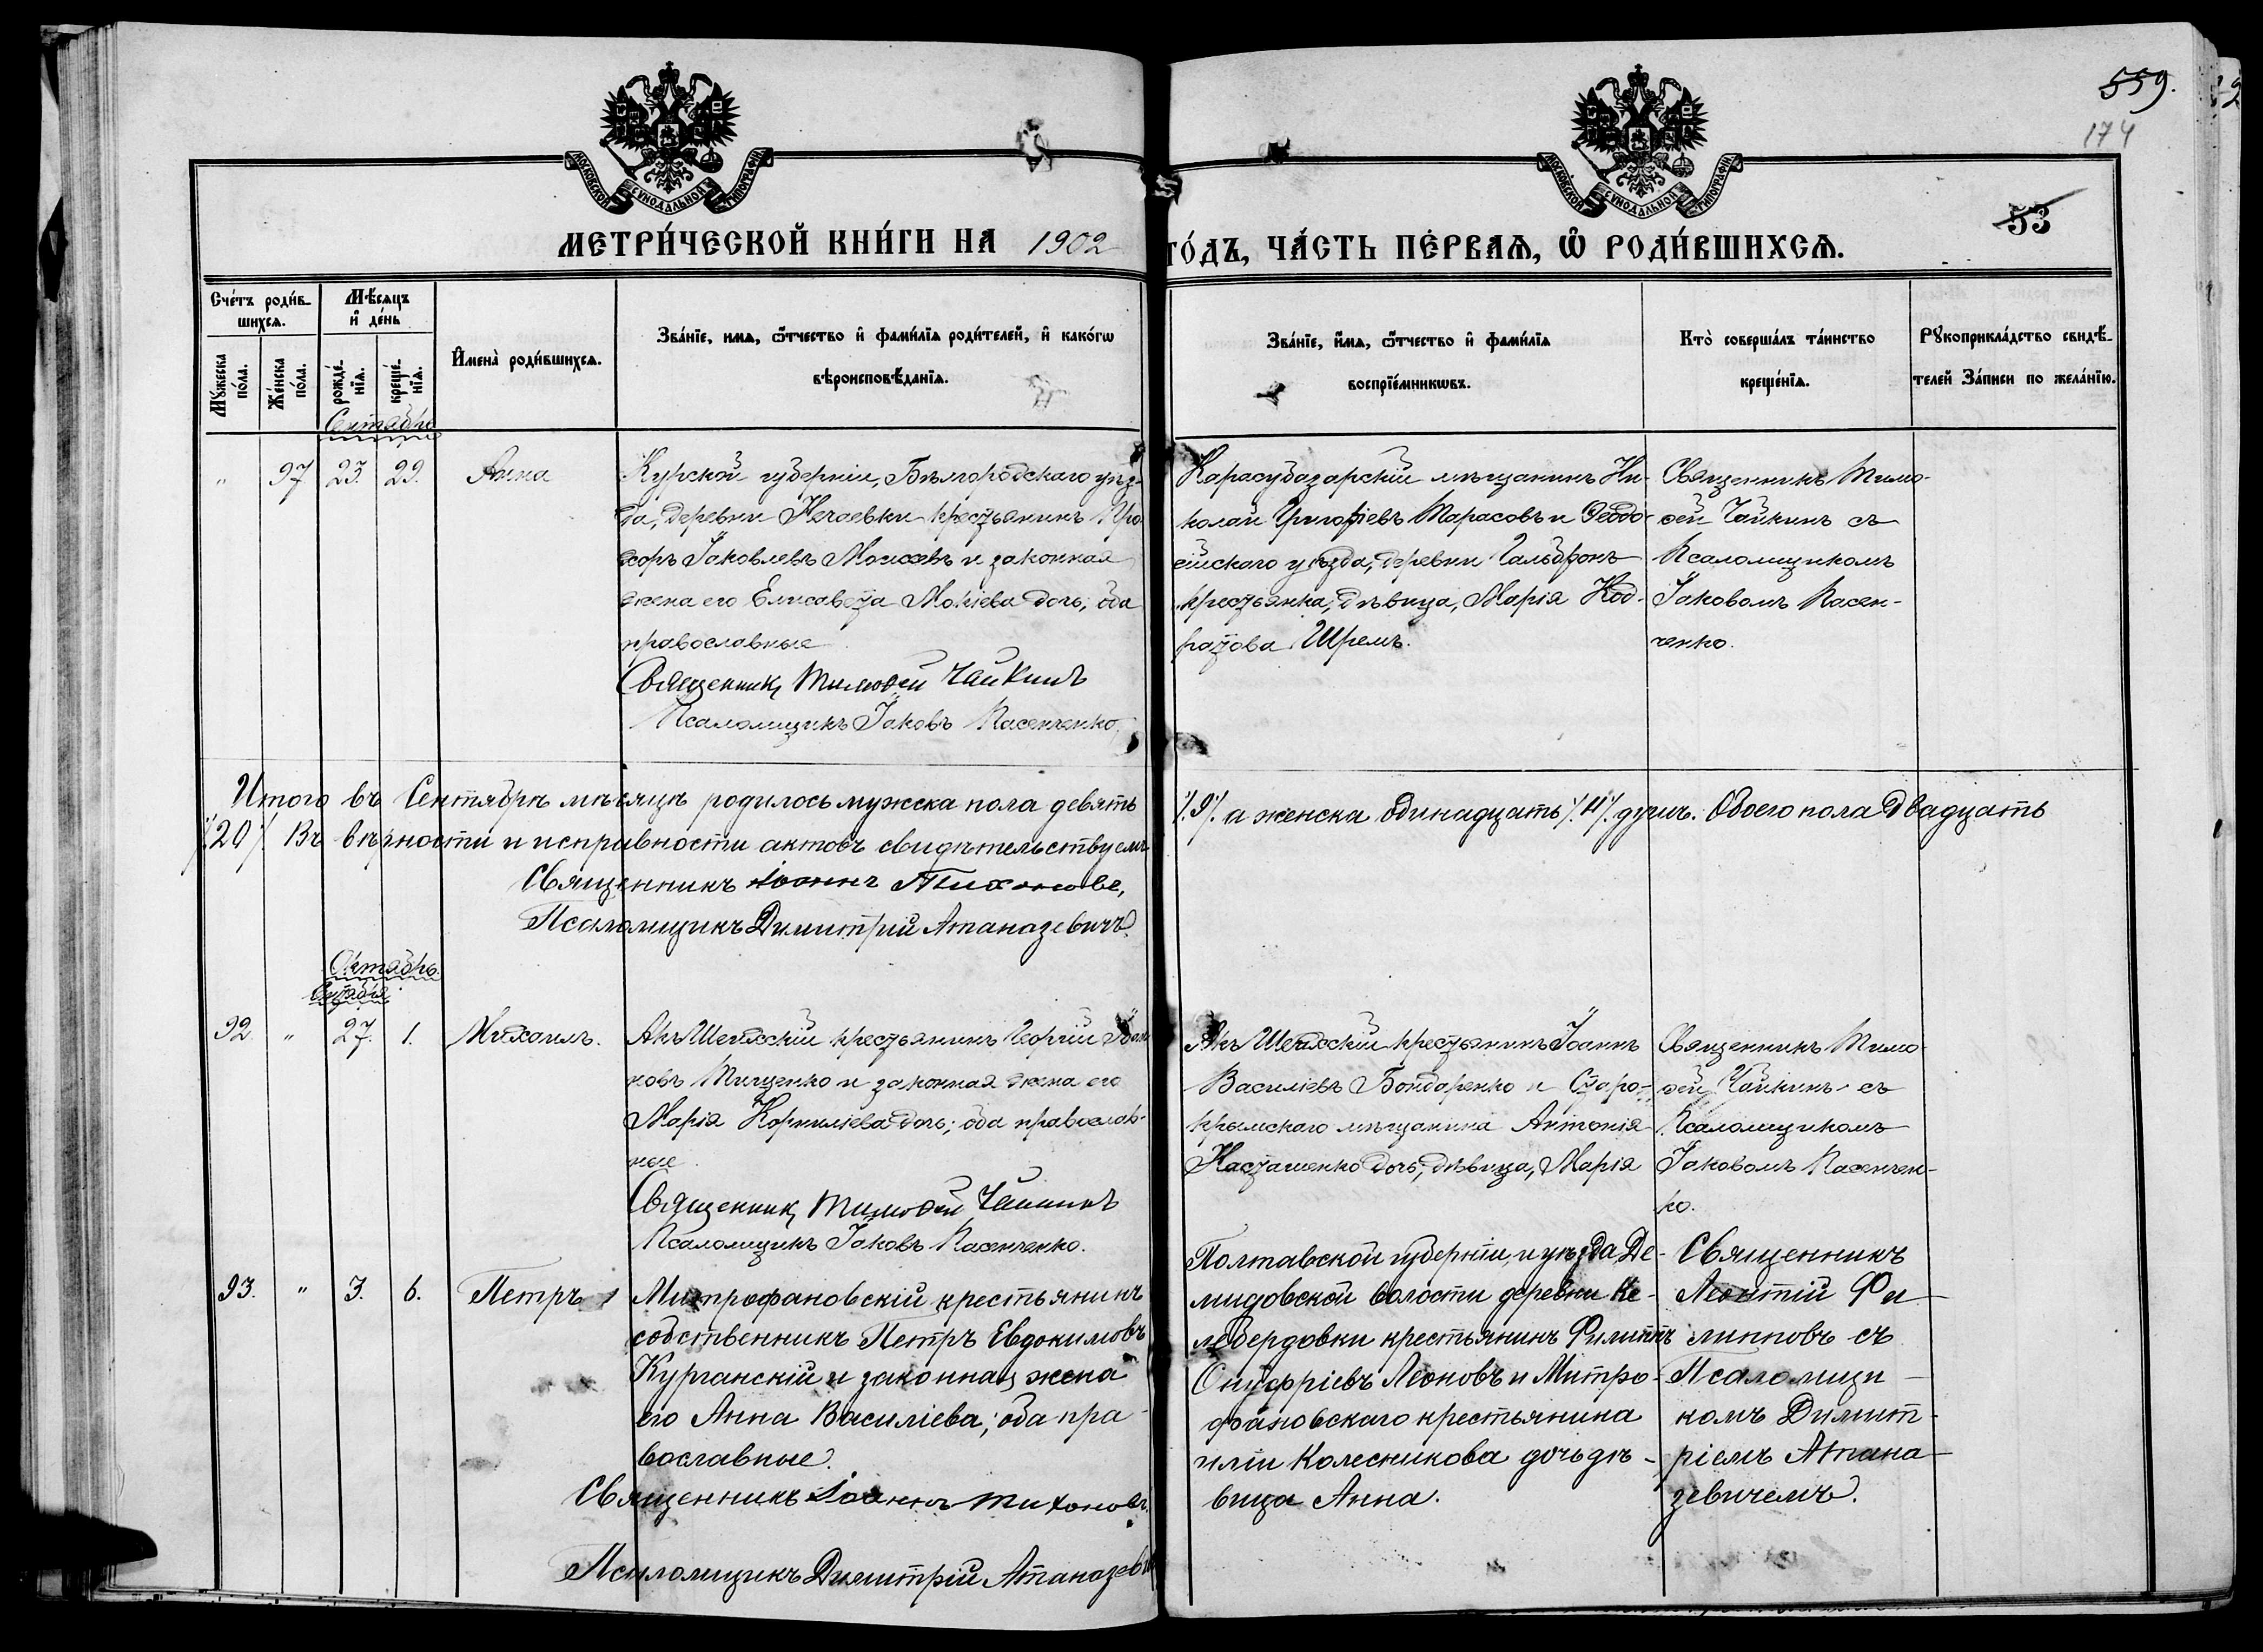 559.
174
53
МОСКОВСКОЙ СѴНОДАЛЬНОЙ ТИПОГРАФІИ
МОСКОВСКОЙ СѴНОДАЛЬНОЙ ТИПОГРАФІИ
МЕТРИ́ЧЕСКОЙ КНИ́ГИ НА 1902
ГО́ДЪ, ЧА́СТЬ ПЕ́РВАѦ, Ѡ҆ РОДИ́ВШИХСѦ.
Сче́тъ роди́в-
шихсѧ.
Мѣ́сѧцъ
и҆ де́нь
Мꙋ́жеска по́ла.
Же́нска по́ла.
рожде́-
нїѧ.
креще́-
нїѧ.
И҆мена̀ роди́вшихсѧ.
Зва́нїе, имѧ, ѻ҆́тчество и҆ фами́лїѧ роди́телей, и҆ како́гѡ
вѣроисповѣ́данїѧ.
Зва́нїе, и҆́мѧ, ѻ҆́тчество и҆ фами́лїѧ
воспрїе́мникѡвъ.
Кто̀ соверша́лъ та́инство
креще́нїѧ.
Рꙋкоприкла́дство свидѣ́-
телей За́писи по жела́нїю.
Сентябрь
" 97 23. 29. Анна
Курской губерніи, Бѣлгородскаго уѣз-
да, деревни Нечаевки крестьянинъ Про
хоръ Іаковлевъ Моисеевъ и законная
жена его Елисавета Мокіева дочь; оба
православные.
Священникъ Тимоѳей Чайкинъ
Псаломщикъ Іаковъ Пасенченко.
Карасубазарскій мѣщанинъ Ни-
колай Григоріевъ Тарасовъ и Ѳеодо-
сійскаго уѣзда, деревни Гальдронъ
крестьянка, дѣвица, Марія Код-
ратова Шремъ.
Священникъ Тимо-
ѳей Чайкинъ съ
Псаломщикомъ
Іаковомъ Пасен-
ченко.
Итого въ Сентябрѣ мѣсяцѣ родилось мужска пола девять
/.9/. а женска одинадцать /.11/. душъ. Обоего пола двадцать
/.20/. Въ вѣрности и исправности актовъ свидѣтельствуемъ
Священникъ Іоаннъ Тихоновъ,
Псаломщикъ Димитрій Атаназевичъ.
Октябрь.
Сентября
92. " 27. 1. Михаилъ.
Акъ Шеихскій крестьянинъ Георгій Іоан-
новъ Тищенко и законная жена его
Марія Корниліева дочь; оба православ-
ные.
Священникъ Тимоѳей Чайкинъ
Псаломщикъ Іаковъ Пасенченко.
Акъ Шеихскій крестьянинъ Іоаннъ
Василіевъ Бондаренко и Старо-
крымскаго мѣщанина Антонія
Насташенко дочь, дѣвица, Марія
Священникъ Тимо-
ѳей Чайкинъ съ
Псаломщикомъ
Іаковомъ Пасенчен-
ко.
93. " 3. 6. Петръ
Митрофановскій крестьянинъ
собственникъ Петръ Евдокимовъ
Курганскій и законная жена
его Анна Василіева; оба пра-
вославные.
Священникъ Іоаннъ Тихоновъ.
Псаломщикъ Димитрій Атаназевичъ
Полтавской губерніи, и уѣзда Де-
мидовской волости деревни Ке-
лебердовки крестьянинъ Филиппъ
Онуфріевъ Леоновъ и Митро-
фановскаго крестьянина
Иліи Колесникова дочь дѣ-
вица Анна.
Священникъ
Леонтій Фи-
липповъ съ
Псаломщи-
комъ Димит-
ріемъ Атана-
зевичемъ.